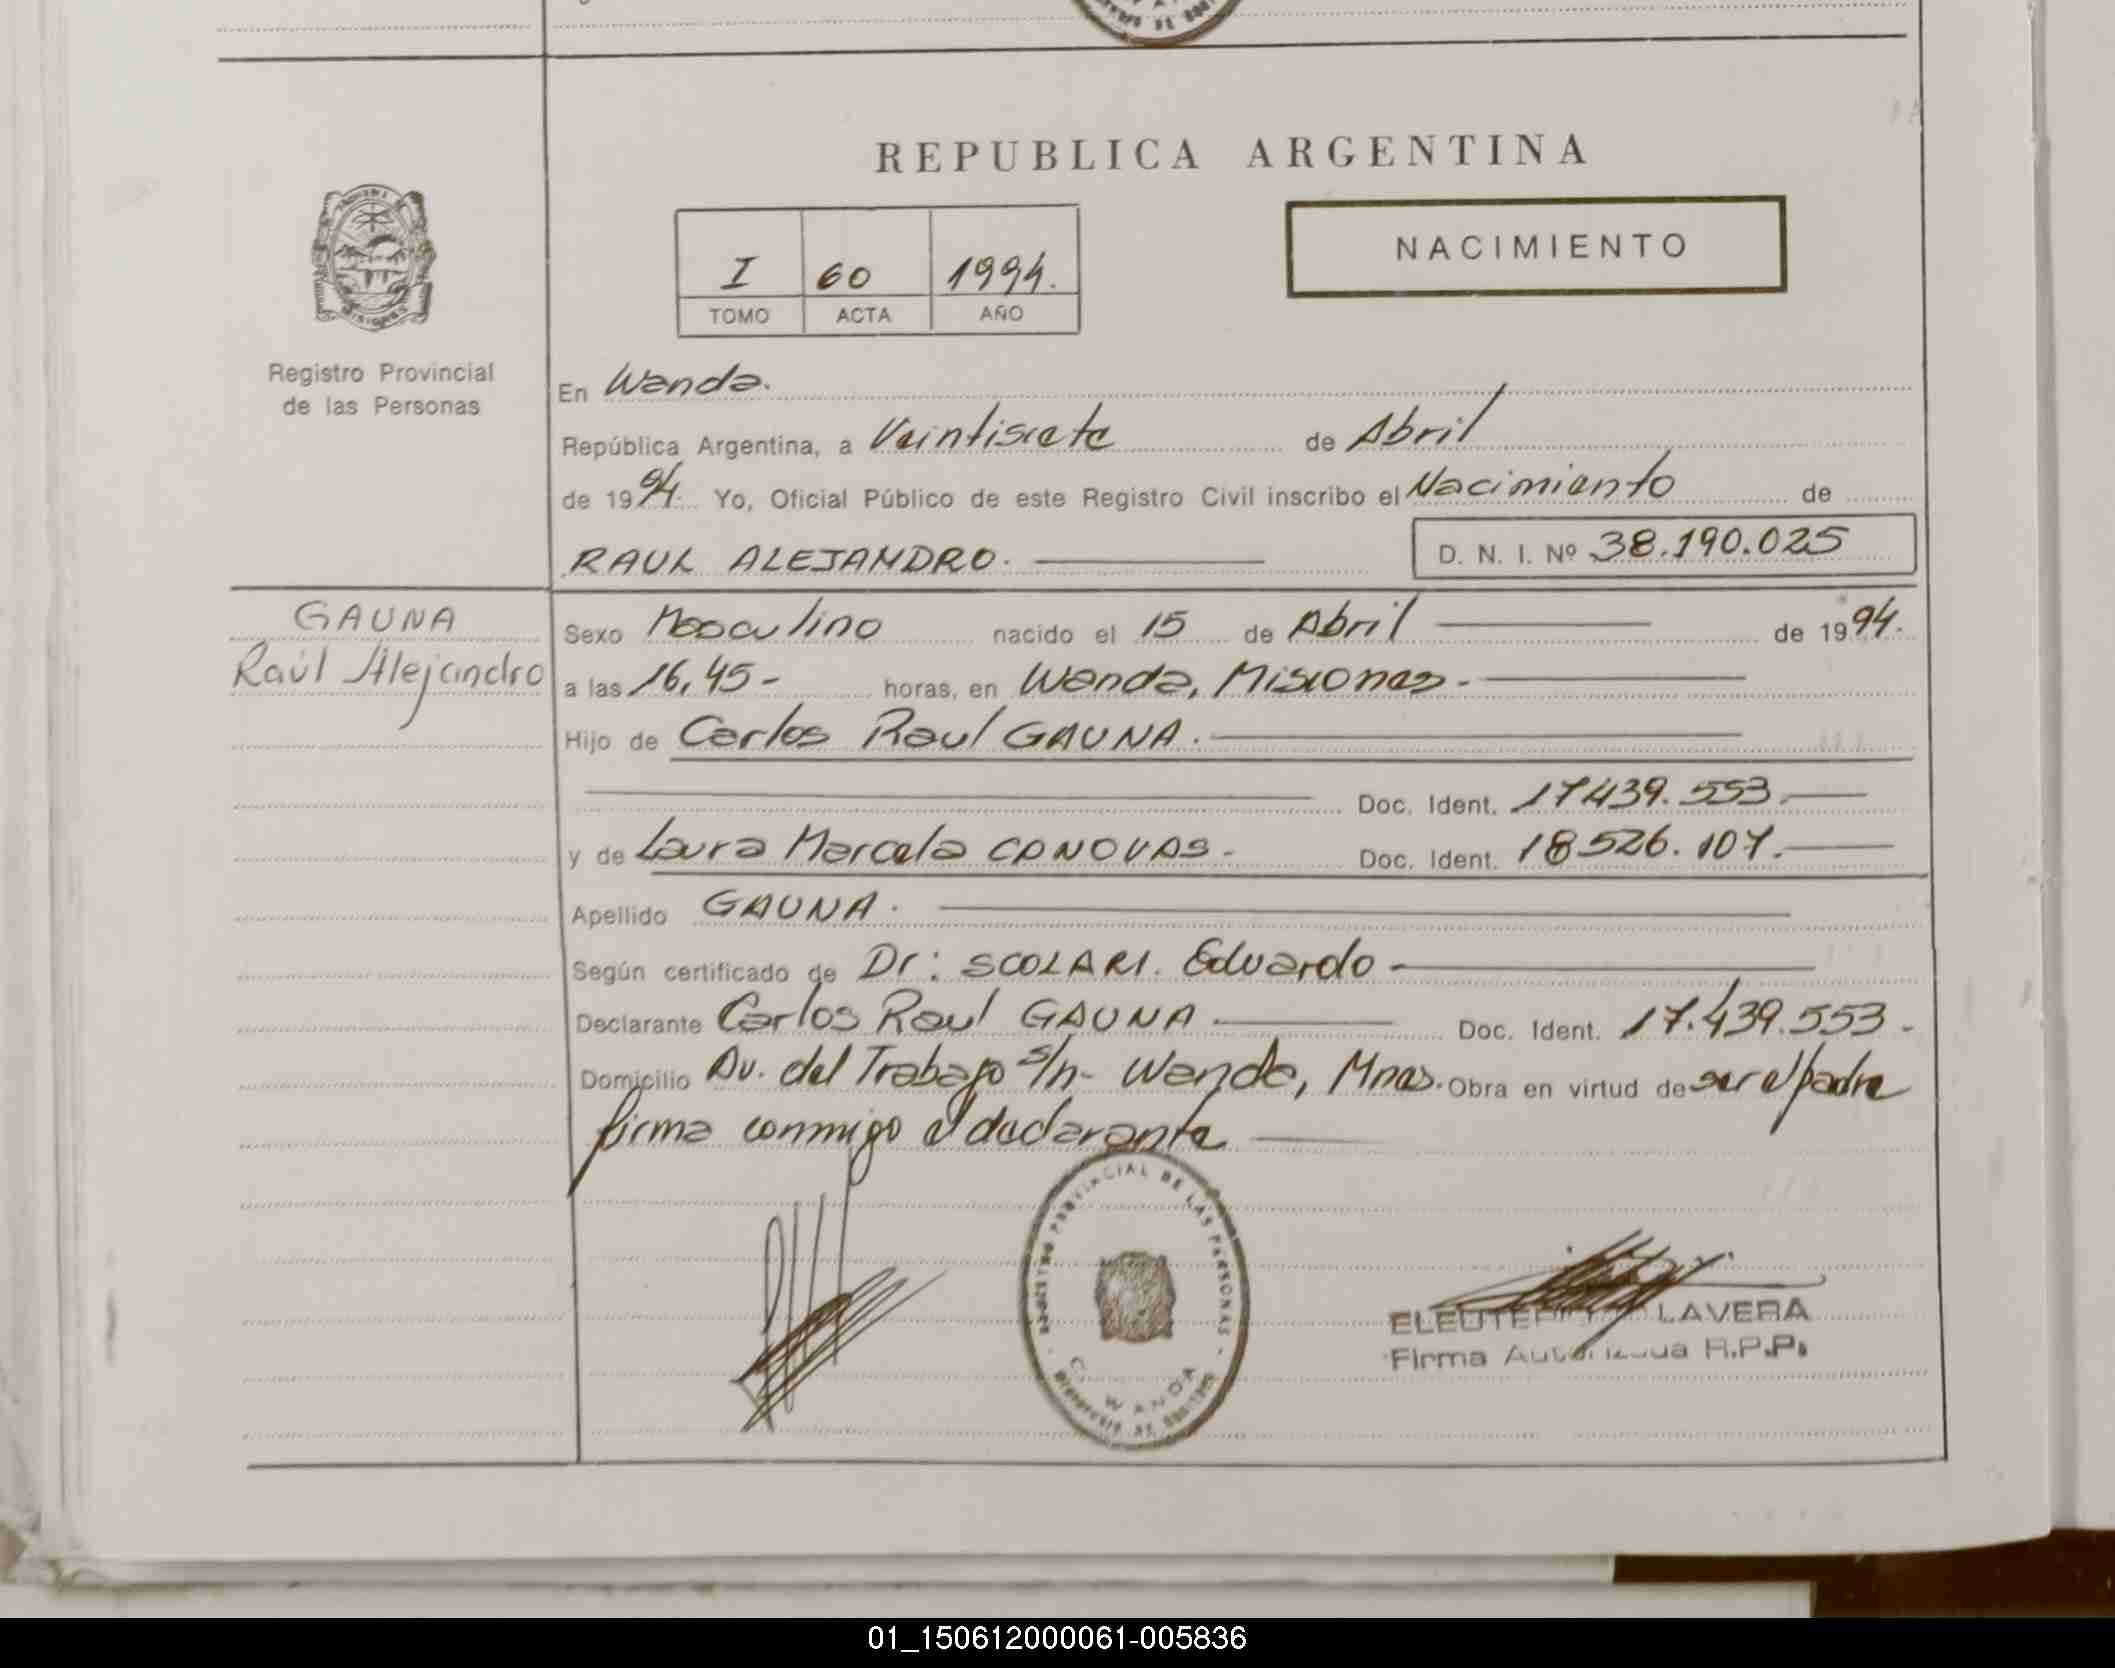 REPUBLICA ARGENTINA
NACIMIENTO
I 60 1994.
TOMO ACTA AÑO
Registro Provincial
de las Personas
En Wanda.
República Argentina, a Veintisiete de Abril
de 1994. Yo, Oficial Público de este Registro Civil inscribo el Nacimiento de
RAUL ALEJANDRO.
D. N. I. Nº 38.190.025
GAUNA
Raúl Alejandro
Sexo Masculino nacido el 15 de Abril de 1994.
a las 16,45- horas, en Wanda, Misiones.-
Hijo de Carlos Raul GAUNA.
Doc. Ident. 17439.553.
y de Laura Marcela CANOVAS.- Doc. Ident. 18526.107.
Apellido GAUNA.
Según certificado de Dr: SCOLARI. Eduardo-
Declarante Carlos Raul GAUNA Doc. Ident. 17.439.553-
Domicilio Av. del Trabajo s/n- Wanda, Mnes. Obra en virtud de ser el padre
firma conmigo el declarante
REGISTRO PROVINCIAL DE LAS PERSONAS
WANDA
LAVERA
Firma R.P.P.
01_150612000061-005836